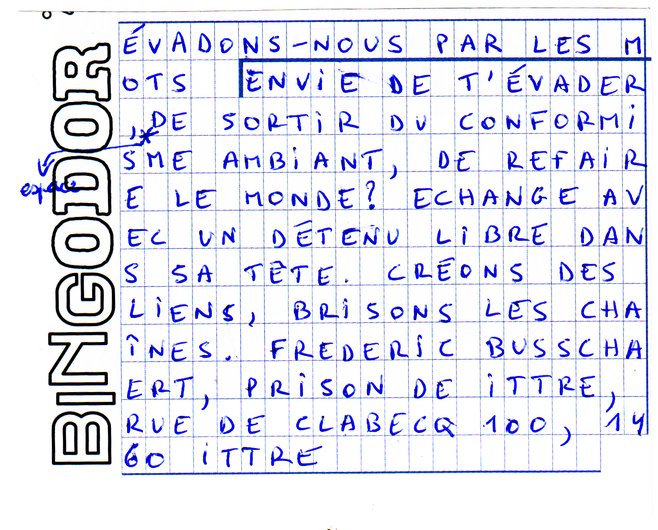 BINGODOR
ÉVADONS-NOUS PAR LES M
OTS ENViE DE T'ÉVADER
, DE SORTiR DU CONFORMi
espace
SME AMBiANT, DE REFAiR
E LE MONDE? ECHANGE AV
EC UN DÉTENU LiBRE DAN
S SA TÊTE. CRÉONS DES
LiENS, BRiSONS LES CHA
ÎNES. FREDERiC BUSSCHA
ERT, PRiSON DE iTTRE,
RUE DE CLABECQ 100, 14
60 iTTRE